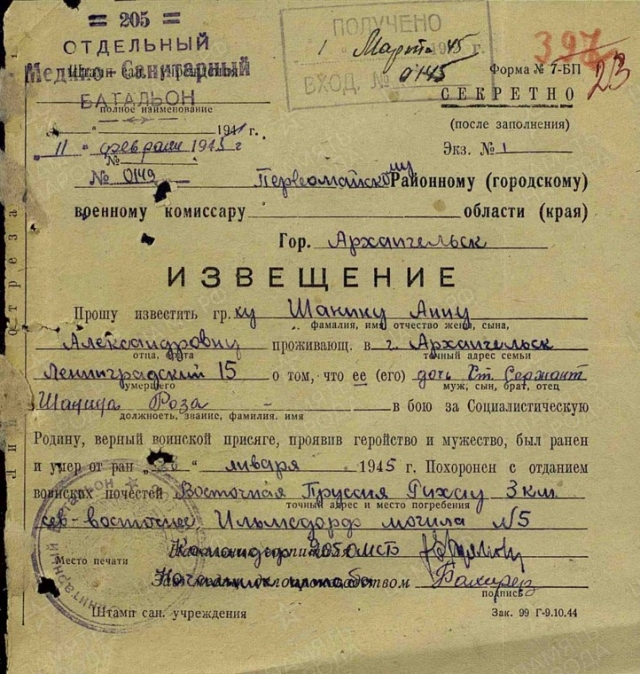 = 205 =
ОТДЕЛЬНЫЙ
Медико-Санитарный
БАТАЛЬОН
полное наименование
ПОЛУЧЕНО
1 Марта 45 г.
ВХОД. № 0145
397
23
Форма № 7-БП
СЕКРЕТНО
(после заполнения)
Экз. № 1
194 г.
"11" февраля 1945 г
№
№ 0149
Первомайскому Районному (городскому)
военному комиссару области (края)
Гор. Архангельск
ИЗВЕЩЕНИЕ
Прошу известить гр.ку Шанину Анну
фамилия, имя отчество жены, сына,
Александровну проживающ. в г. Архангельск
отца, брата точный адрес семьи
Ленинградский 15 о том, что ее (его) дочь Ст. Сержант
умершего муж, сын, брат, отец
Шанина Роза - в бою за Социалистическую
должность, звание, фамилия. имя
Родину, верный воинской присяге, проявив геройство и мужество, был ранен
и умер от ран "28" января 1945 г. Похоронен с отданием
воинских почестей Восточная Пруссия Рихау 3 км.
точный адрес и место погребения
сев-восточнее Ильмсдорф могила №5
Командир 205 ОМСБ
Место печати
Начальник штаба
подпись
Штамп сан. учреждения
Зак. 99 Г-9.10.44